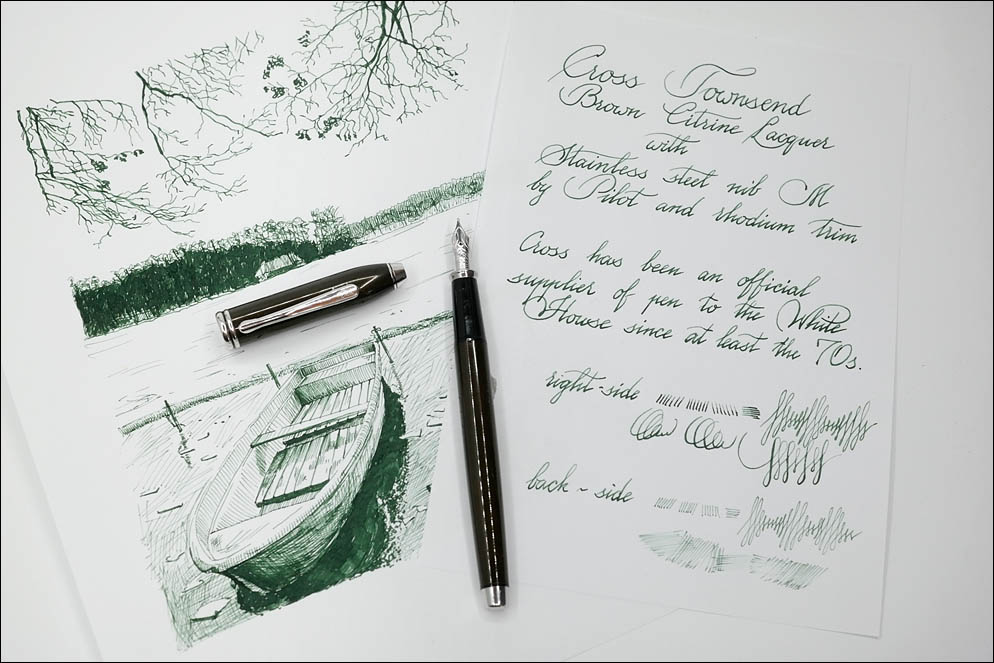 Cross Townsend
Brown Citrine Lacquer
with
Stainless steel nib M
by Pilot and rhodium trim
Cross has been an official
supplier of pen to the White
House since at least the 70s.
right-side
back ~ side